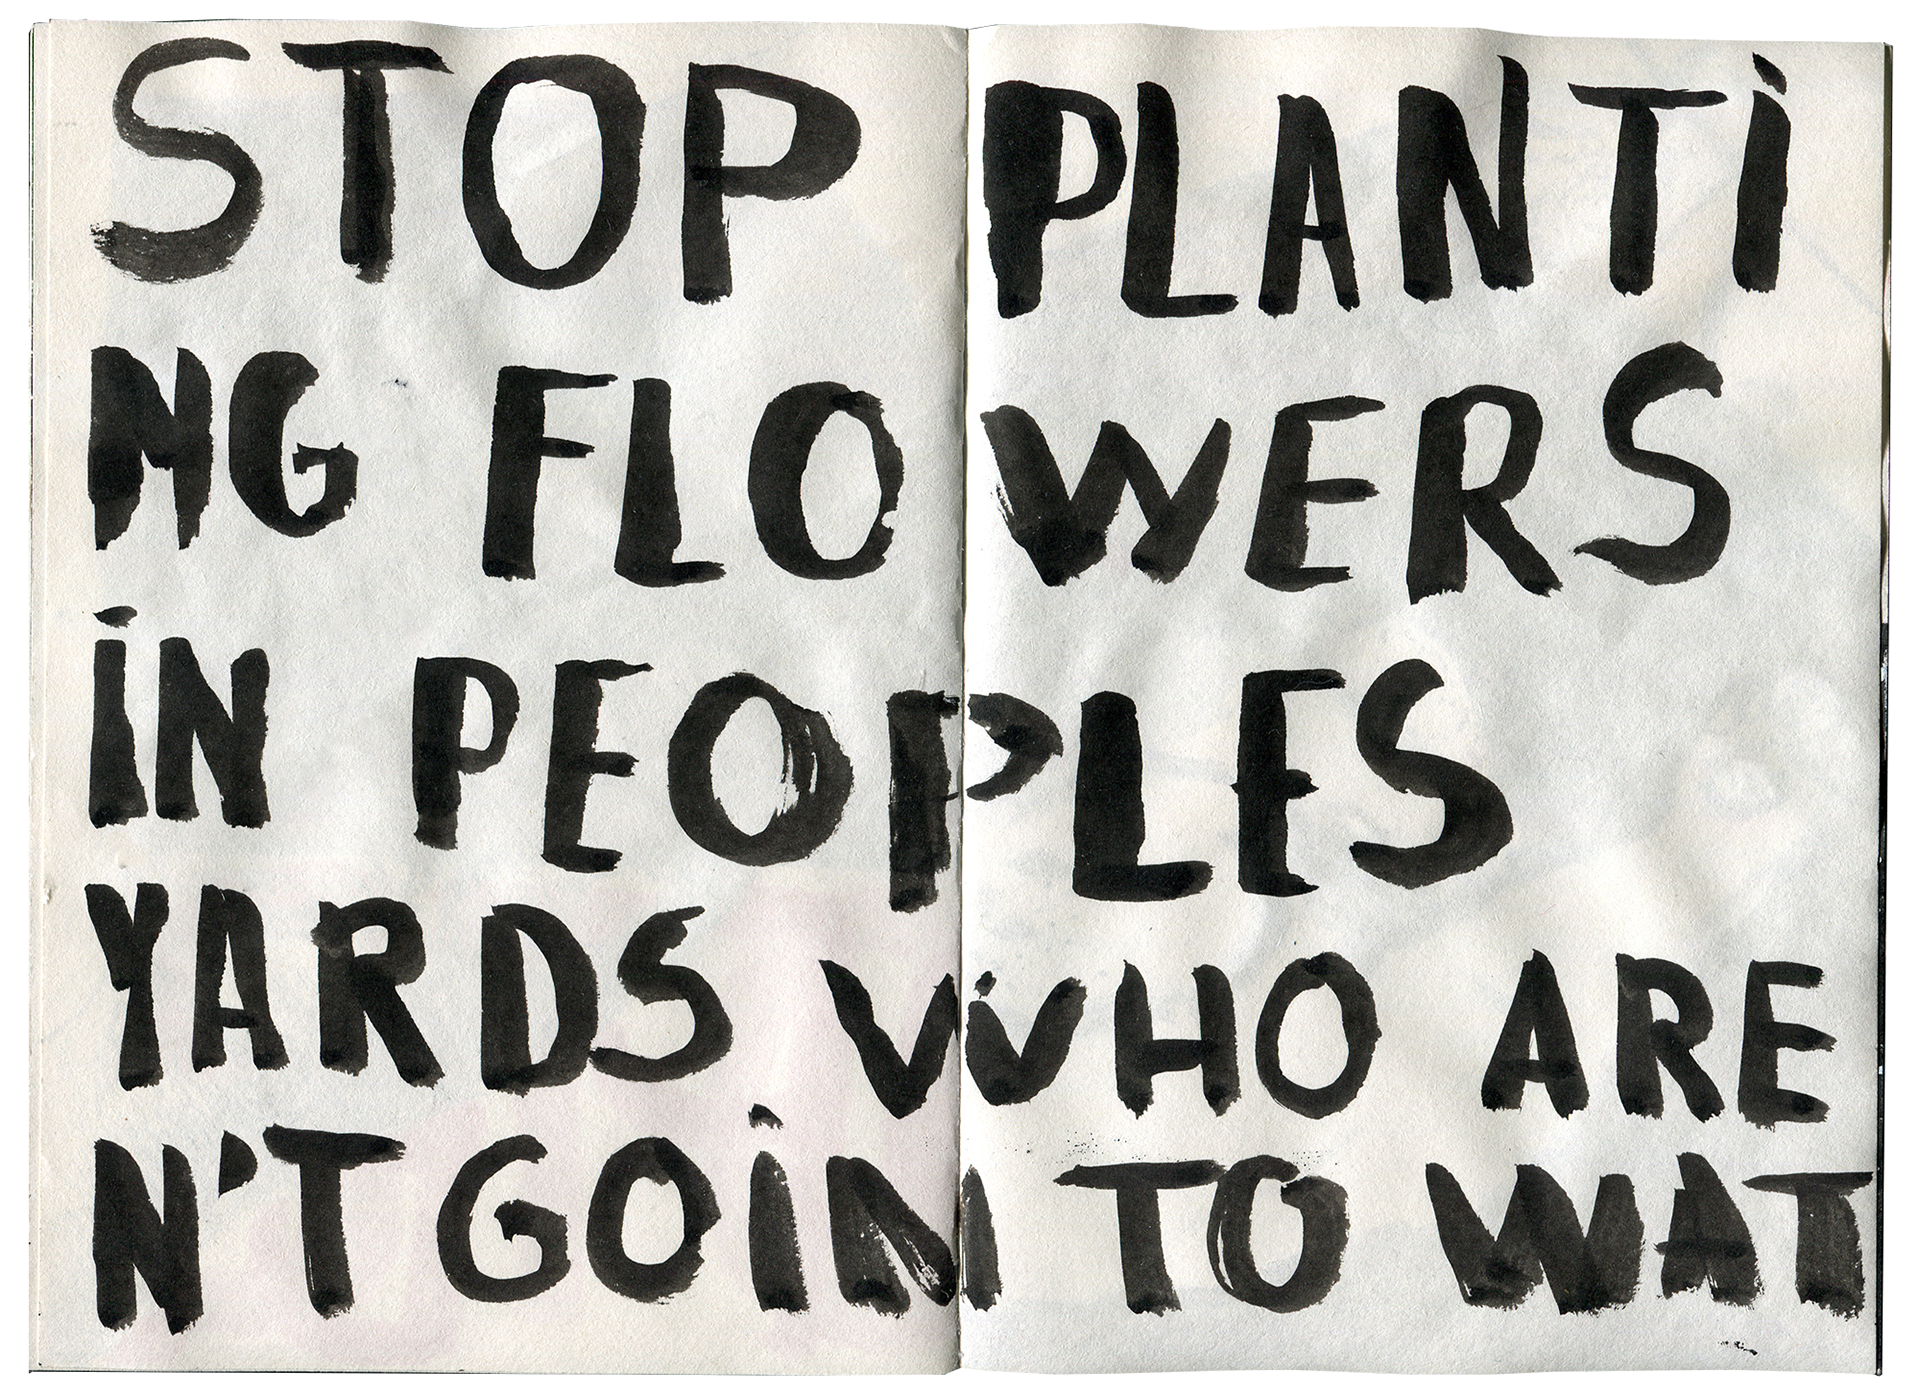 STOP PLANTI
NG FLOWERS
iN PEOPLES
YARDS WHO ARE
N'T GOiN TO WAT